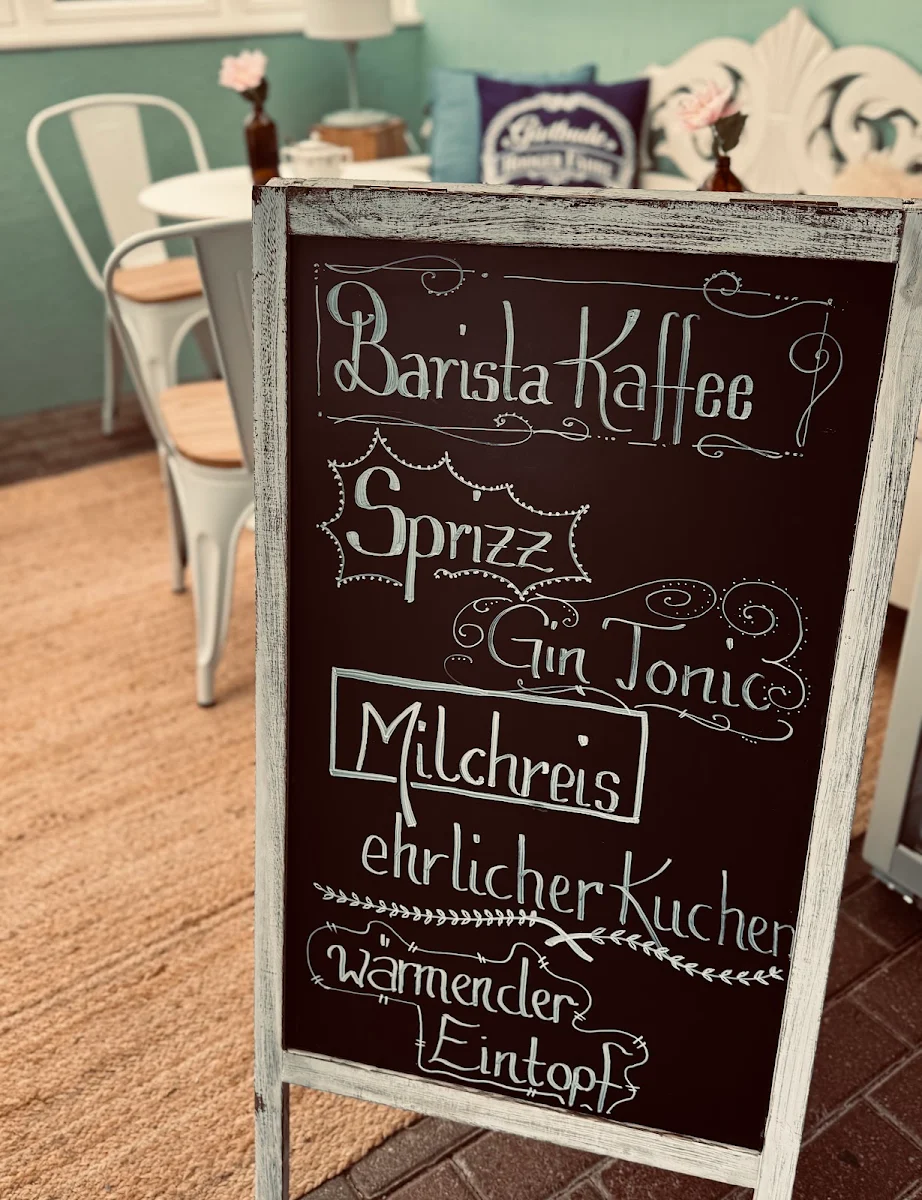 Barista Kaffee
Sprizz
Gin Tonic
Milchreis
ehrlicher Kuchen
wärmender
Eintopf